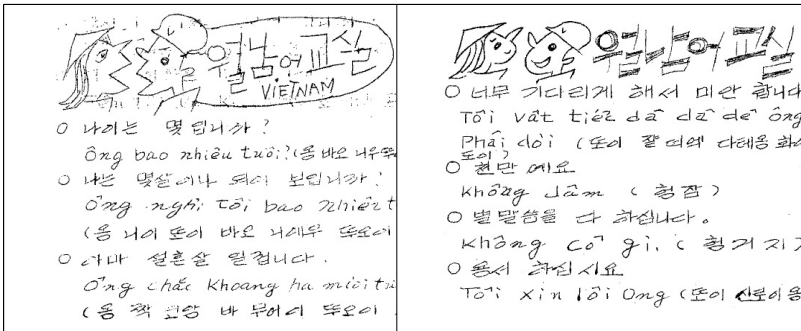 월남어교실
VIETNAM
○ 나이는 몇 입니까?
ông bao nhiêu tuôi?(옹 바오 니우
○ 나는 몇살이나 되어 보입니까?
Ông nghi Tôi bao nhiên t
(옹 니이 또이 바오 니에우 뚜오이
○ 아마 설흔살 일겁니다.
Ông chắc Khoang ba mươi
(옹 짝 코앙 바 무어이 뚜오이
월남어교실
○ 너무 기다리게 해서 미안 합니다
Tôi vât tiéz dâ dâ dê' ông
Phải dòi (또이 떠이
또이)
○ 천만 에요
không dâm ( 헝잠 )
○ 별말씀을 다 하십니다.
không cô gì. ( 헝거지
○ 용서 하십시요
Tôi xin lôi Ong (또이 신로이 옹